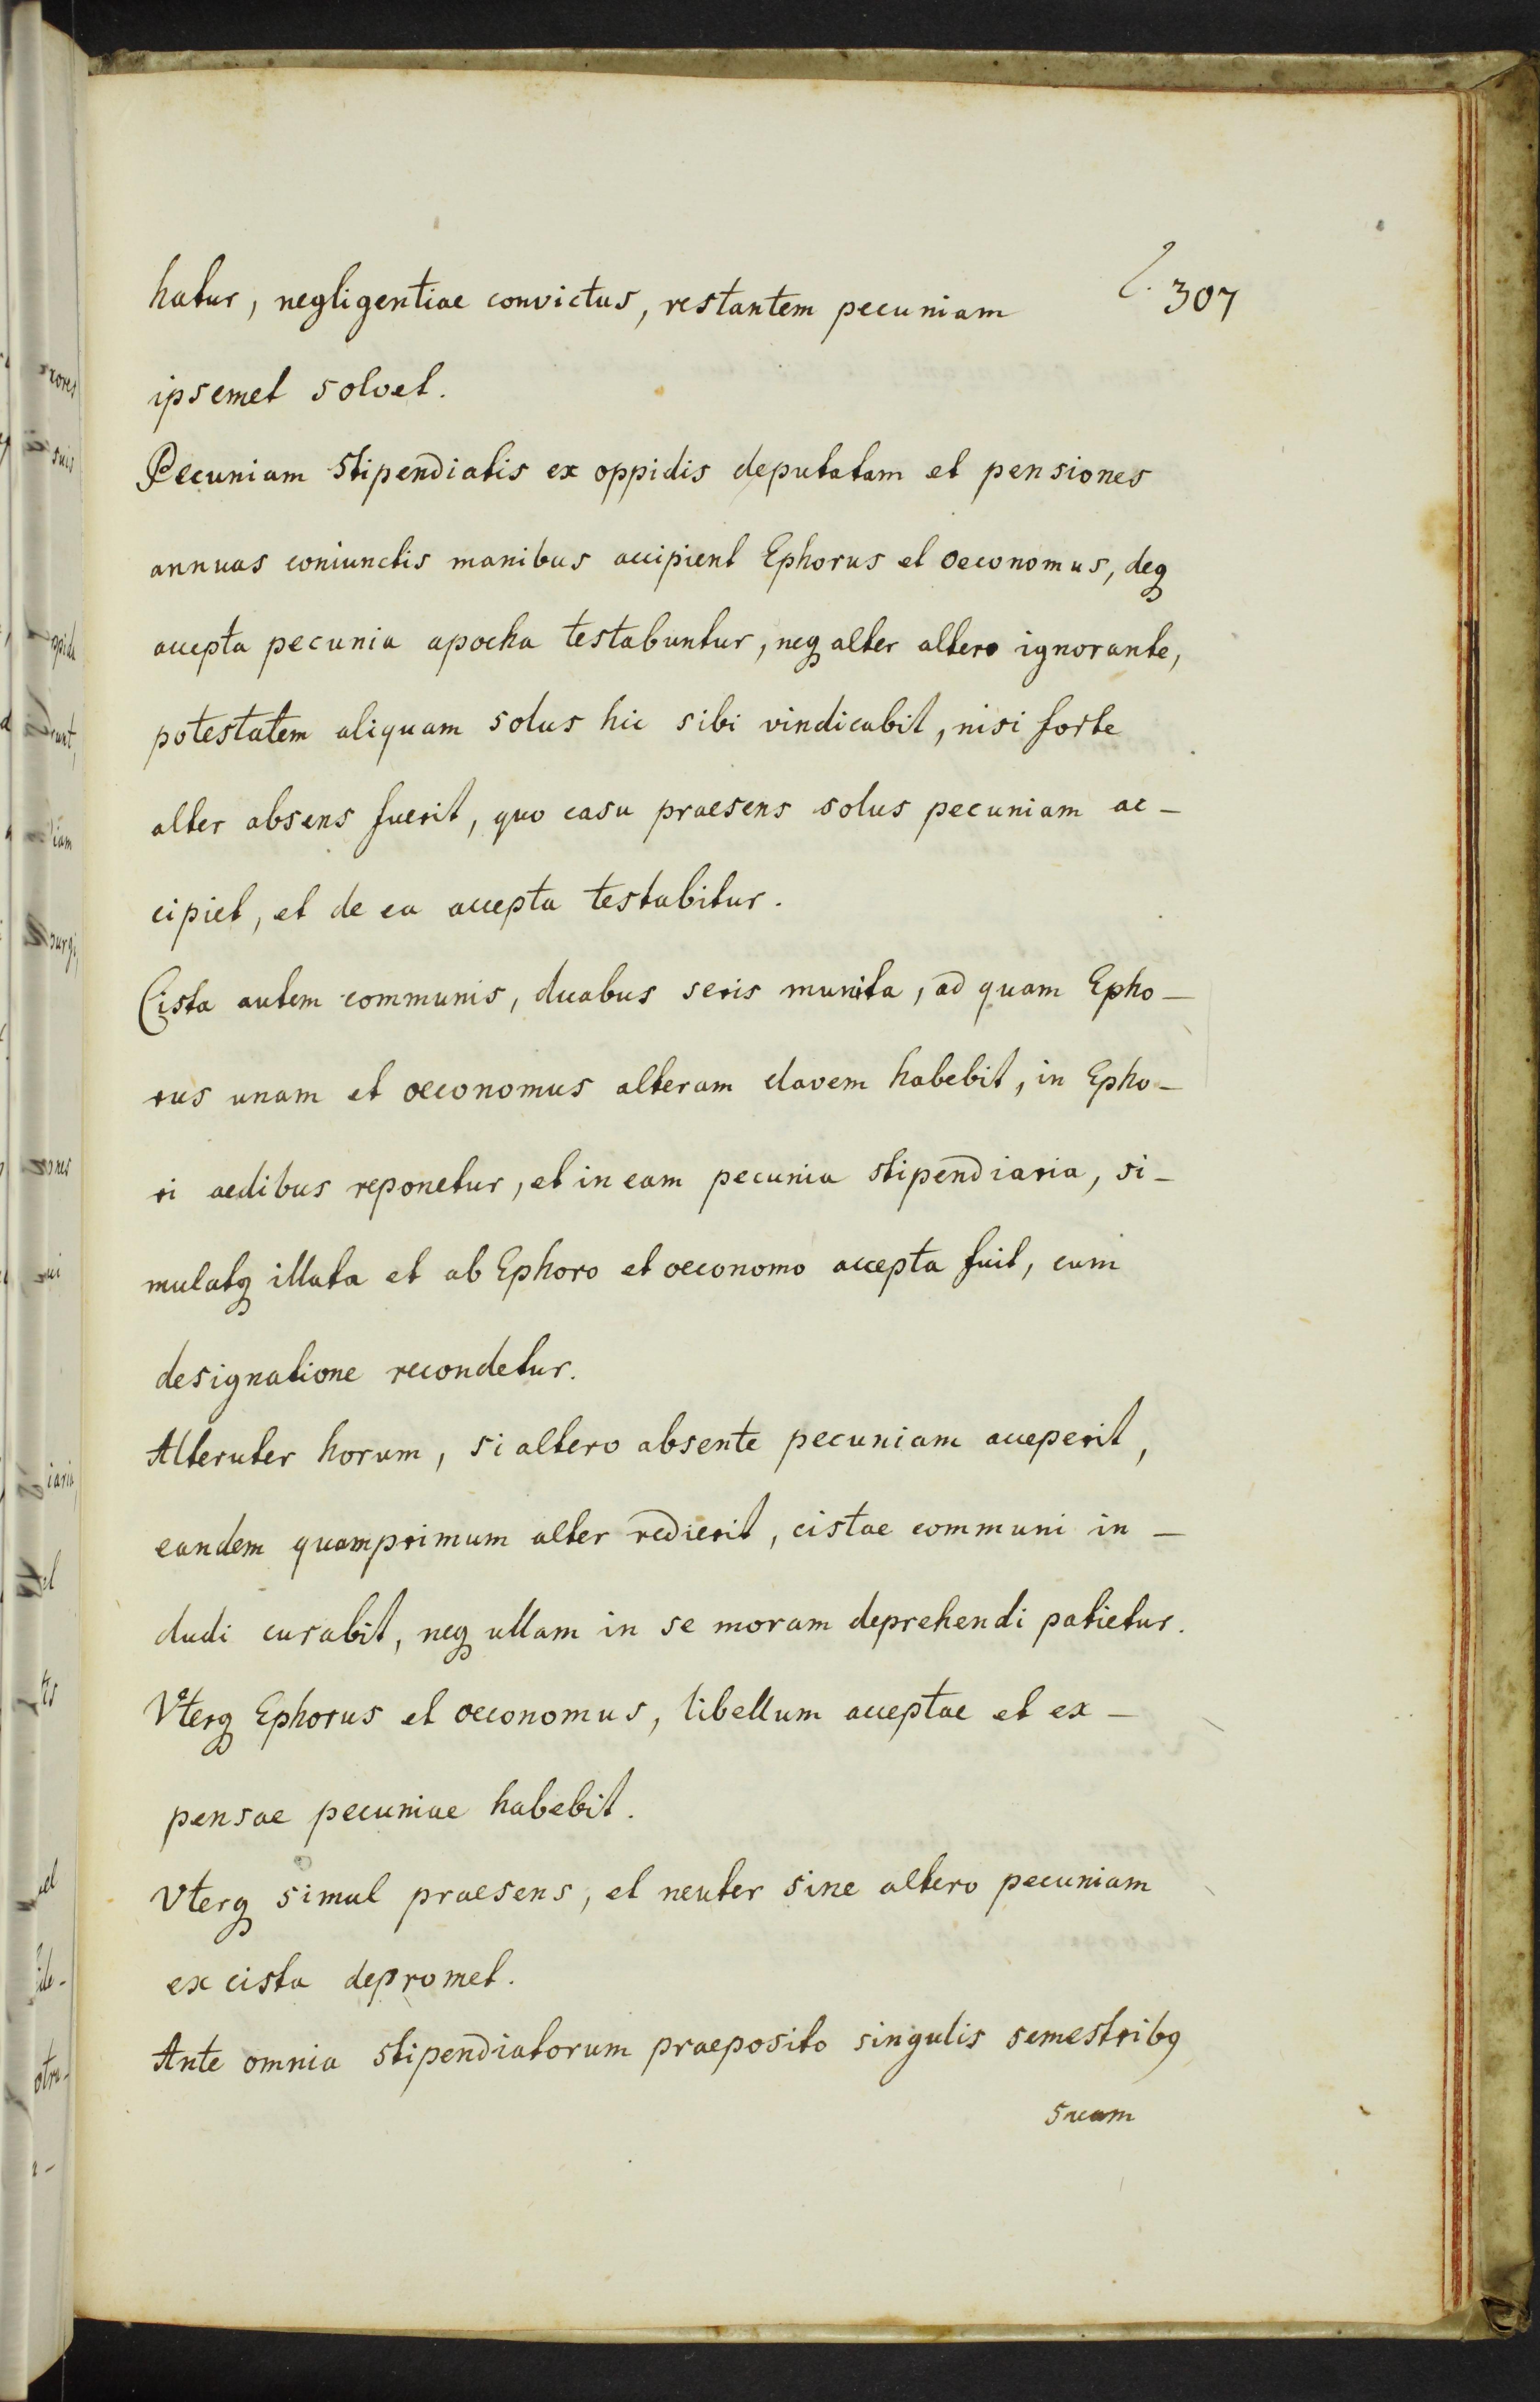 hatur, negligentiae convictus, restantem pecuniam
307
ipsemet solvet.
Pecuniam stipendiatis ex oppidis deputatam et pensiones
annuas coniunctis manibus accipient Ephorus et oeconomus, deq
accepta pecunia apocha testabuntur, neq alter altero ignorante,
potestatem aliquam solus hic sibi vindicabit, nisi forte
alter absens fuerit, quo casu praesens solus pecuniam ac-
cipiet, et de ea accepta testabitur.
Cista autem communis, duabus seris munita, ad quam Epho-
rus unam et oeconomus alteram clavem habebit, in Epho-
ri aedibus reponetur, et in eam pecunia stipendiaria, si-
mulatq illata et ab Ephoro et oeconomo accepta fuit, cum
designatione recondetur.
Alteruter horum, si altero absente pecuniam acceperit,
eandem quamprimum alter redierit, cistae communi in-
cludi curabit, neq ullam in se moram deprehendi patietur.
Vterq Ephorus et oeconomus, libellum acceptae et ex-
pensae pecuniae habebit.
Vterq simul praesens, et neuter sine altero pecuniam
ex cista depromet.
Ante omnia stipendiatorum praeposito singulis semestribq
suam